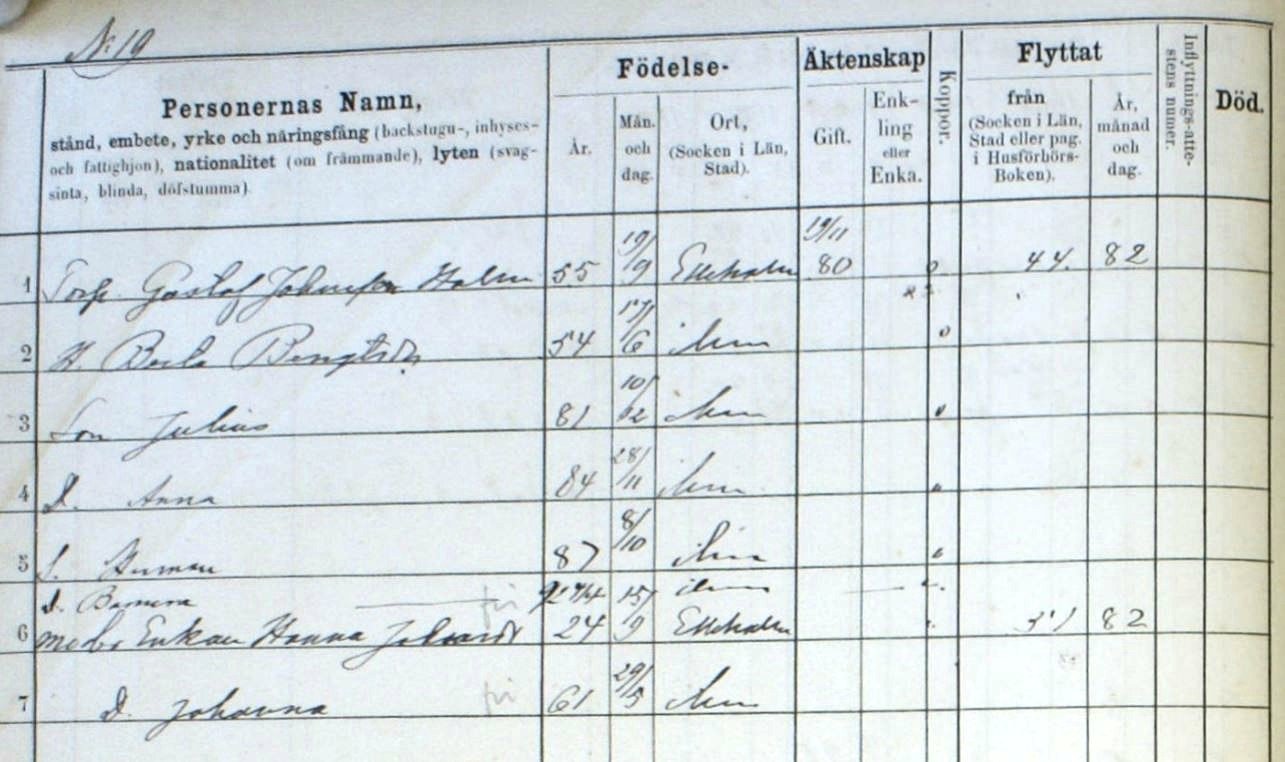 N: 19
Personernas Namn,
stånd, embete, yrke och näringsfång (backstugu-, inhyses-
och fattighjon), nationalitet (om främmande), lyten (svag-
sinta, blinda, döfstumma).
Födelse-
År.
Mån.
och
dag.
Ort,
(Socken i Län,
Stad).
Äktenskap
Gift.
Enk-
ling
eller
Enka.
Koppor.
Flyttat
från
(Socken i Län,
Stad eller pag.
i Husförhörs-
Boken).
År,
månad
och
dag.
Inflyttnings-atte-
stens numer.
Död.
1 Gustaf Holm 55 19/9 19/11 80 44. 82
2 H. Bengtsdr 54 17/6 ibm
3 Son Julius 81 10/12 ibm
4 D. Anna 84 28/11 ibm
5 S. Herman 87 8/10 ibm
D.
6 Enkan Hanna 24 15/9 82
7 D. Johanna 61 29/5 ibm